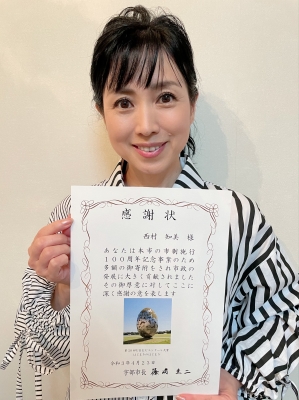 感謝状
西村 知美 様
あなたは本市の市制施行
100周年記念事業のため
多額の御寄附をされ市政の
発展に大きく貢献されました
その御厚意に対してここに
深く感謝の意を表します
宇部市長 篠﨑 圭二